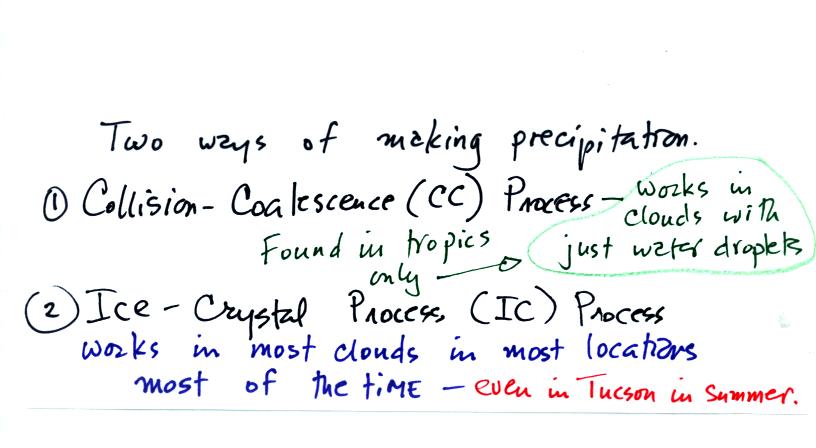 Two ways of making precipitation.
① Collision-Coalescence (CC) Process - works in
clouds with
just water droplets
Found in tropics
only
② Ice-Crystal Process, (IC) Process
works in most clouds in most locations
most of the time - even in Tucson in summer.